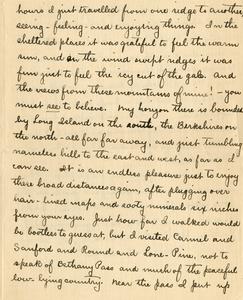 hours I just travelled from one ridge to another
seeing - feeling - and enjoying things. In the
sheltered places it was grateful to feel the warm
sun, and on the wind swept ridges it was
fun just to feel the icy cut of the gale. And
the views from these mountains of mine! - you
must see to believe. My horizon there is bounded
by Long Island on the south, the Berkshires on
the north - all far far away, and just tumbling
nameless hills to the east and west, as far as I
can see. It is an endless pleasure just to enjoy
these broad distances again, after plugging over
hair-lined maps and sooty minerals six inches
from your eyes. Just how far I walked would
be bootless to guess at, but I visited Carmel and
Sanford and Round and Lone-Pine, not to
speak of Bethany Pass and much of the peaceful
low-lying country. Near the pass I put up